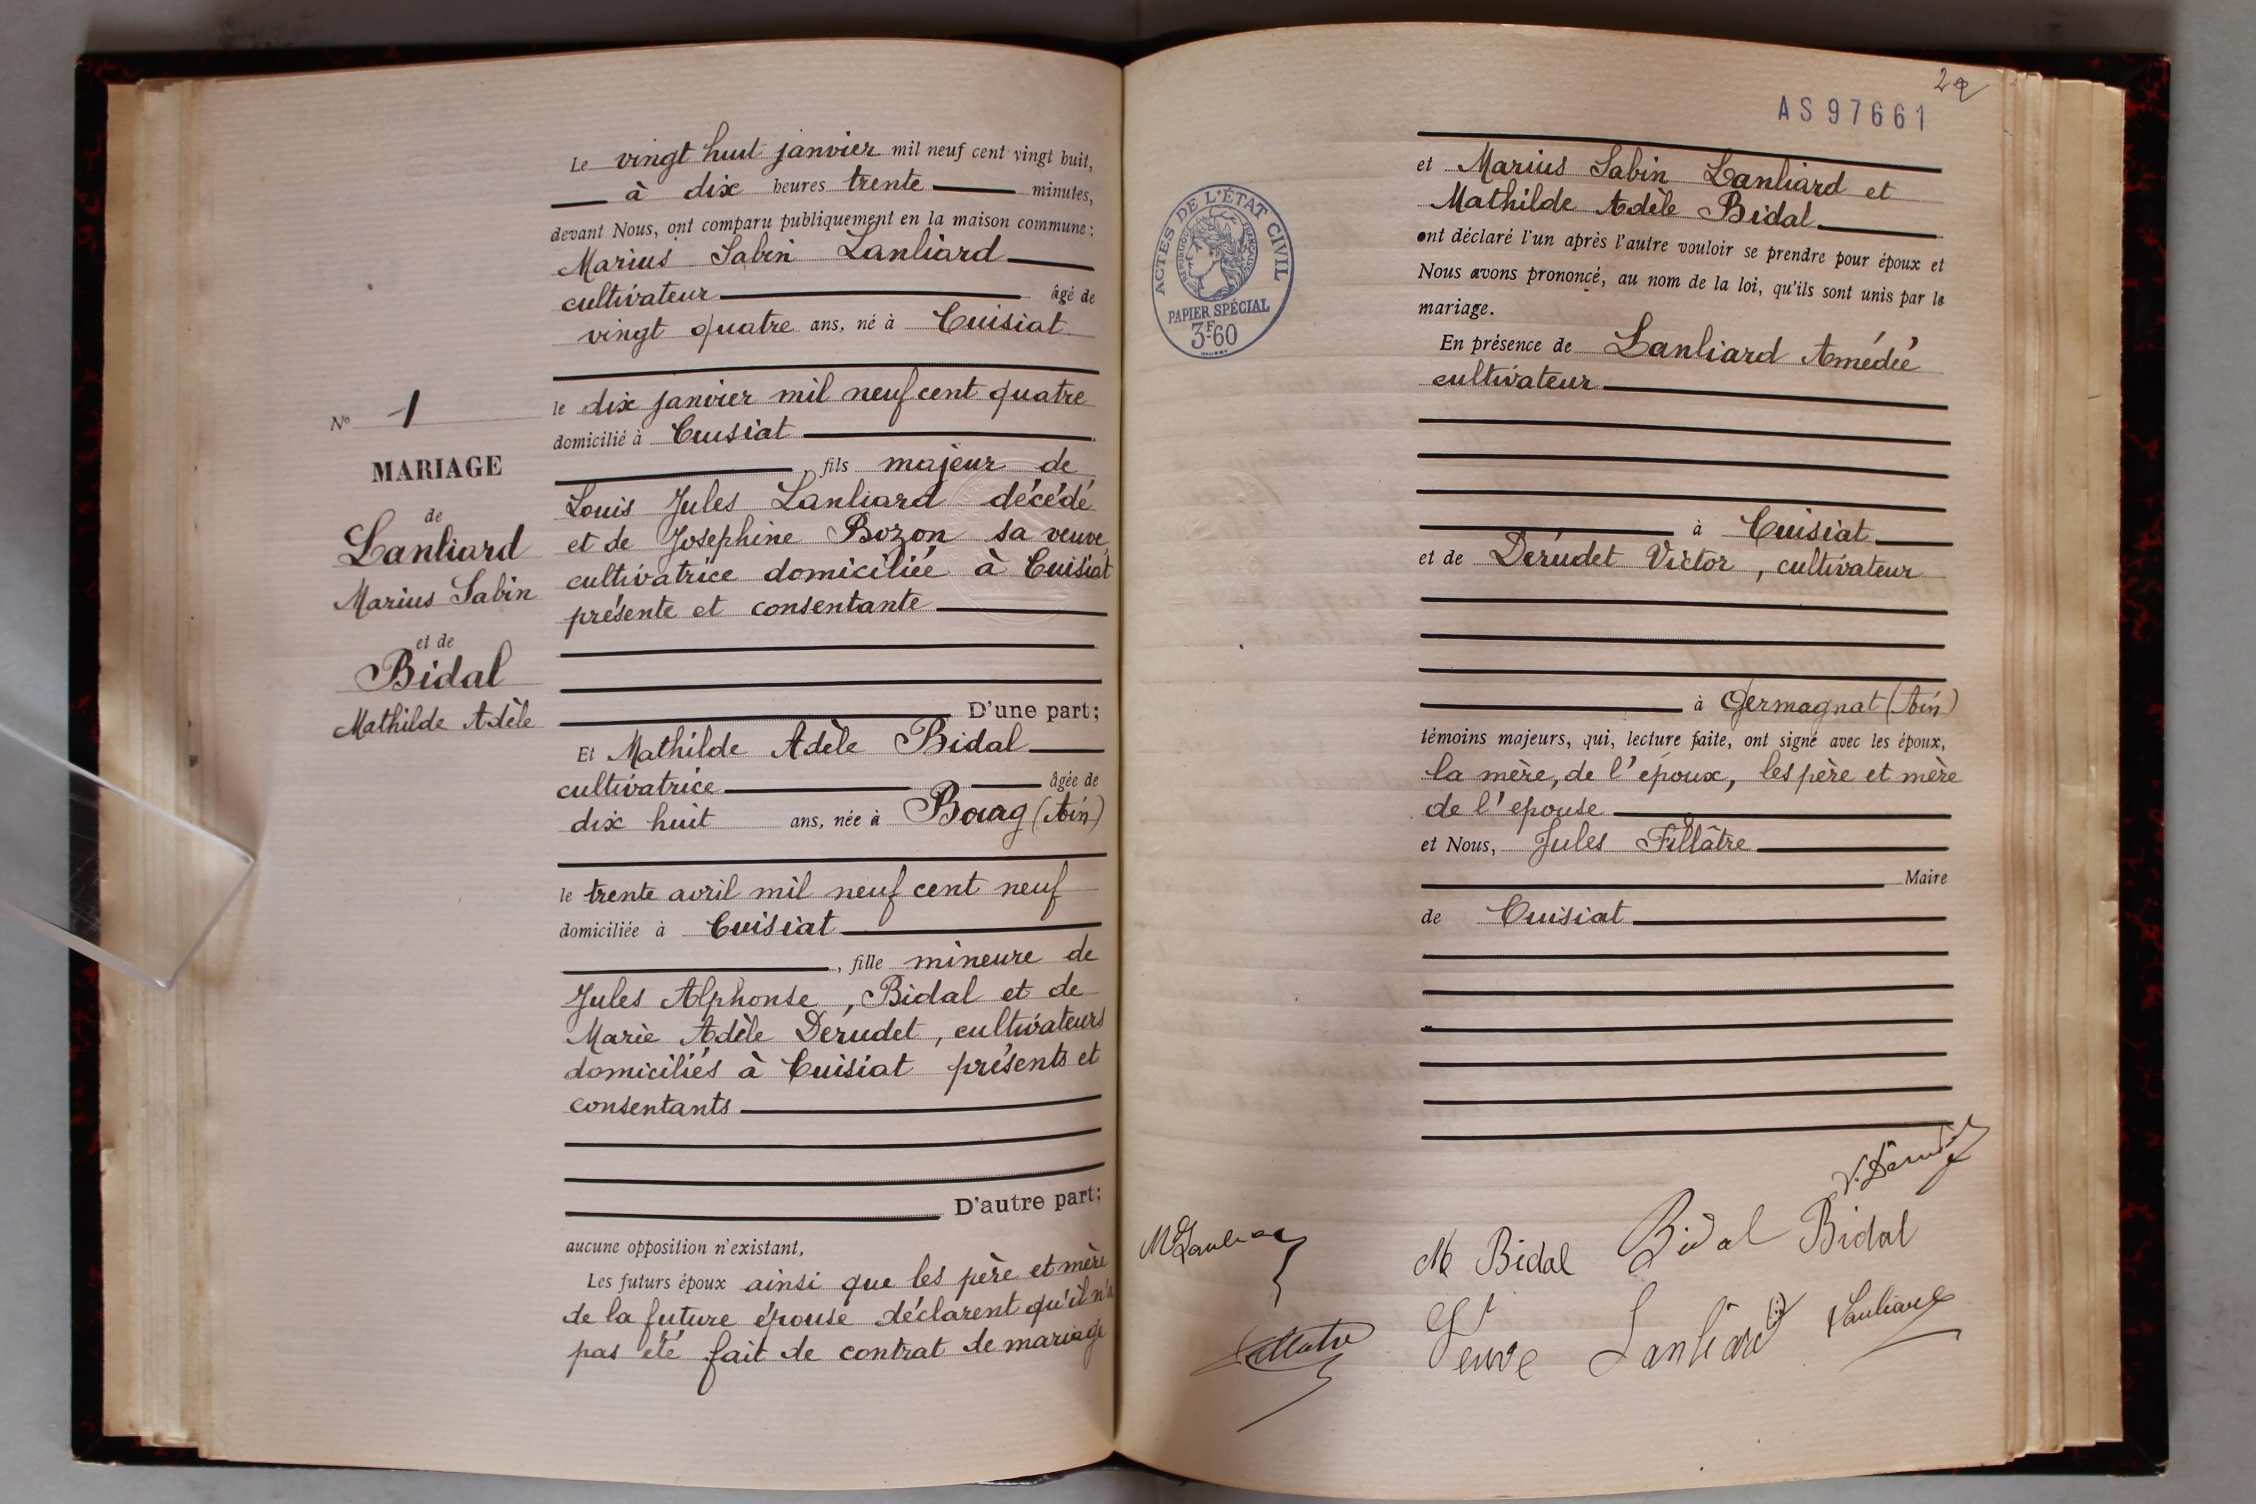 Le vingt huit janvier mil neuf cent vingt huit,
à dix heures trente minutes,
devant Nous, ont comparu publiquement en la maison commune :
Marius Sabin Lanliard
cultivateur âgé de
vingt quatre ans, né à Cuisiat
le dix janvier mil neuf cent quatre
domicilié à Cuisiat
, fils majeur de
Louis Jules Lanliard décédé
et de Joséphine Bozon sa veuve
cultivatrice domiciliée à Cuisiat
présente et consentante
D'une part ;
Et Mathilde Adèle Bidal
cultivatrice âgée de
dix huit ans, née à Bourg (Ain)
le trente avril mil neuf cent neuf
domiciliée à Cuisiat
, fille mineure de
Jules Alphonse, Bidal et de
Marie Adèle Dérudet, cultivateurs
domiciliés à Cuisiat présents et
consentants
D'autre part ;
aucune opposition n'existant,
Les futurs époux ainsi que les père et mère
de la future épouse déclarent qu'il n'a
pas été fait de contrat de mariage
No 1
MARIAGE
de
Lanliard
Marius Sabin
et de
Bidal
Mathilde Adèle
AS97661
ACTES DE L'ÉTAT CIVIL
RÉPUBLIQUE FRANÇAISE
PAPIER SPÉCIAL
3F.60
et Marius Sabin Lanliard et
Mathilde Adèle Bidal
ont déclaré l'un après l'autre vouloir se prendre pour époux et
Nous avons prononcé, au nom de la loi, qu'ils sont unis par le
mariage.
En présence de Lanliard Amédée
cultivateur
à Cuisiat
et de Dérudet Victor, cultivateur
à Germagnat (Ain)
témoins majeurs, qui, lecture faite, ont signé avec les époux,
la mère, de l'époux, les père et mère
de l'epouse
et Nous, Jules Fillâtre
Maire
de Cuisiat
V. Dérudet
M Lanliard
M Bidal Bidal Bidal
Veuve Lanliard Lanliard
Fillatre